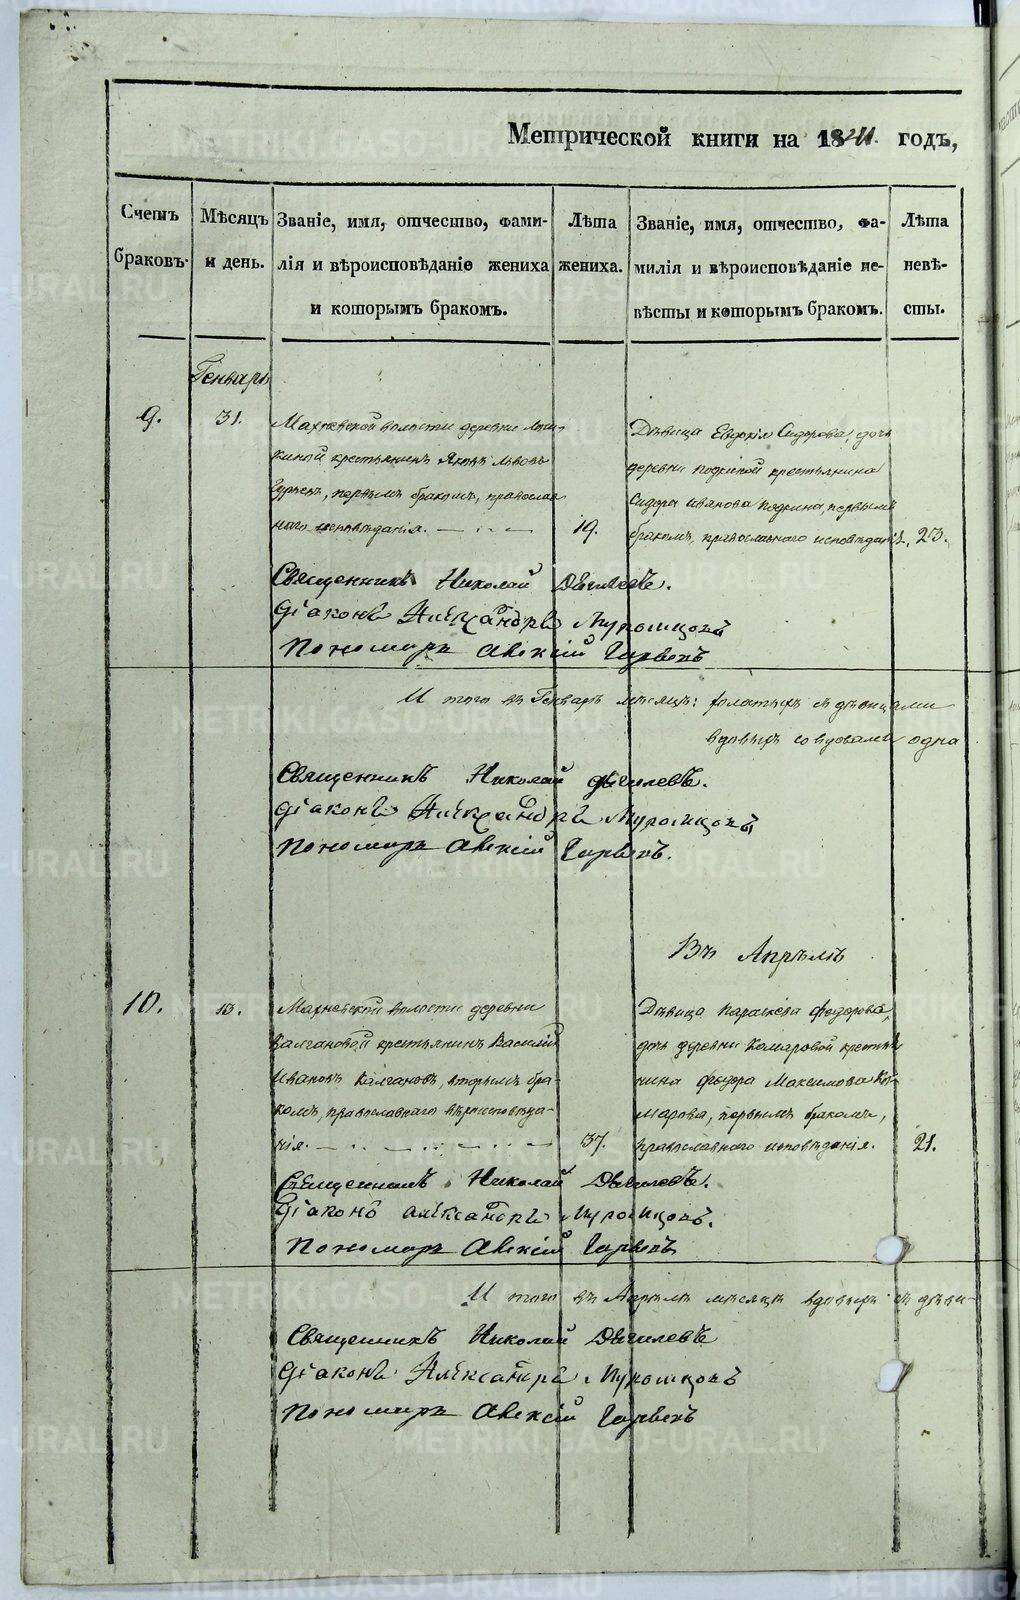 Метрической книги на 1841. годъ,
Счетъ браковъ.
Мѣсяцъ и день.
Званіе, имя, отчество, фами-
лія и вѣроисповѣданіе жениха
и которымъ бракомъ.
Лѣта жениха.
Званіе, имя, отчество, фа-
милія и вѣроисповѣданіе не-
вѣсты и которымъ бракомъ.
Лѣта невѣ-
сты.
Генварь
9.
31.
Махневской волости деревни
крестьянинъ Яковъ Львовъ
первымъ бракомъ, православ
наго исповѣданія.
19.
Дѣвица Евдокія Сидорова, дочь
деревни крестьянина
Сидора Иванова первымъ
бракомъ, православнаго исповѣданія.
23.
Священникъ Николай
Діаконъ Александръ Муромцовъ
Пономарь Алексій
И того въ Генварѣ мѣсяцѣ: холостыхъ съ дѣвицами
вдовыхъ со вдовами одна
Священникъ Николай
Діаконъ Александръ Муромцовъ
Пономарь Алексій
Въ Апрѣлѣ
10.
13.
Махневской волости деревни
Калгановой крестьянинъ Василій
Ивановъ Калгановъ, вторымъ бра-
комъ, православнаго вѣроисповѣда-
нія.
37.
Дѣвица Параскева Федорова,
дочь деревни Комаровой крестья
нина Федора Максимова Ко-
марова, первымъ бракомъ,
православнаго исповѣданія.
21.
Священникъ Николай
Діаконъ Александръ Муромцовъ.
Пономарь Алексій
И того въ Апрѣлѣ мѣсяцѣ вдовыхъ съ дѣви-
Священникъ Николай
Діаконъ Александръ Муромцовъ
Пономарь Алексій
METRIKI.GASO-URAL.RU